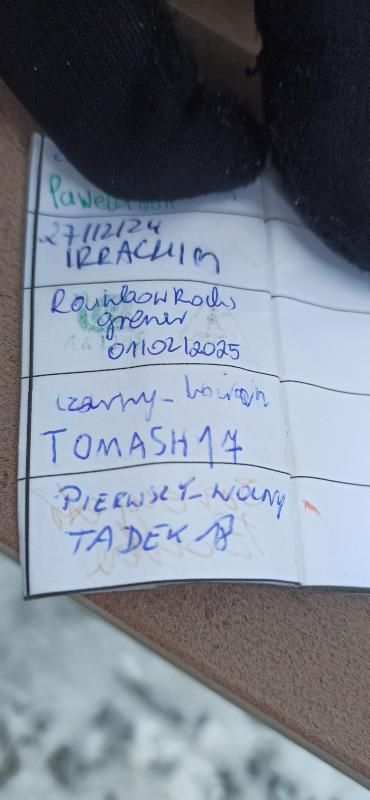 27/12/24
IRRACHIM
RainbowRocks
grener
01/02/2025
czarny_
TOMASH17
PIERWSZY-WOLNY
TADEK 18